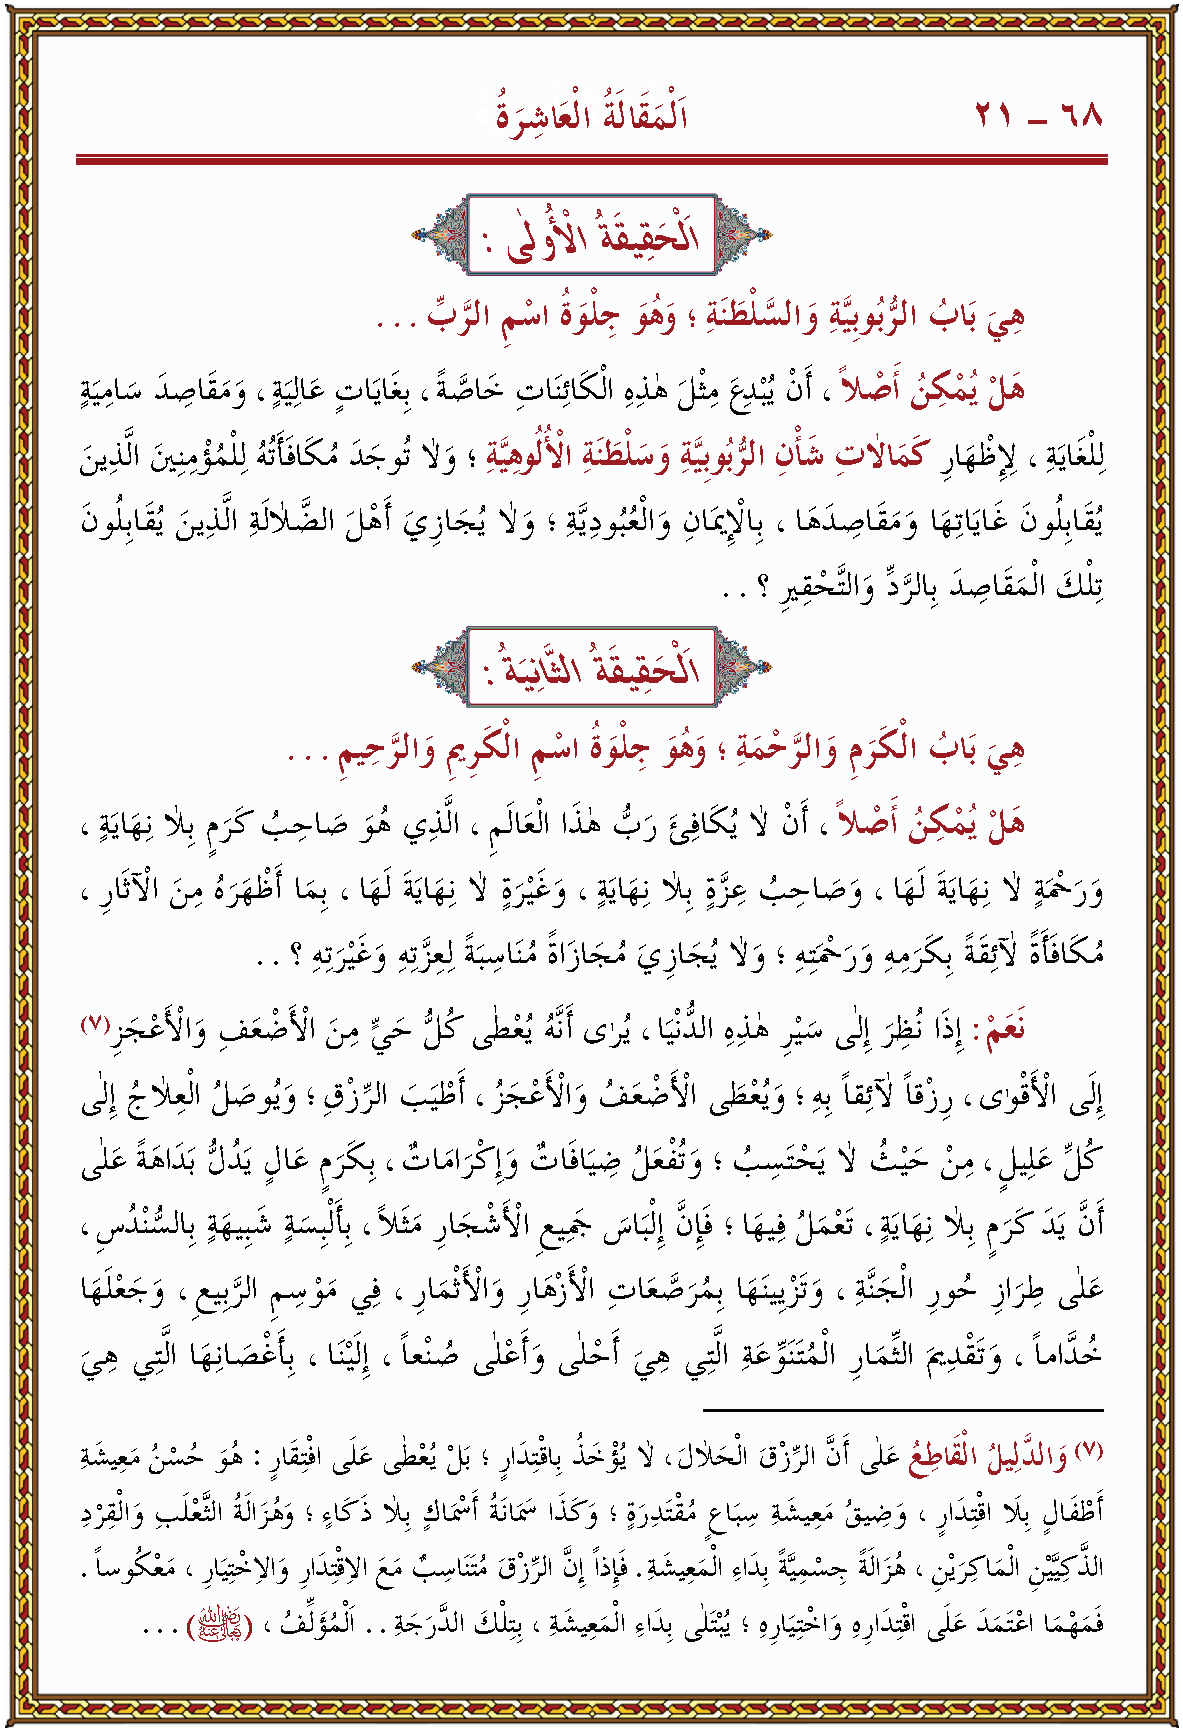 ٦٨ – ٢١ اَلْمَقَالَةُ الْعَاشِرَةُ
اَلْحَقِيقَةُ الْأُولٰى :
هِيَ بَابُ الرُّبُوبِيَّةِ وَالسَّلْطَنَةِ ؛ وَهُوَ جِلْوَةُ اسْمِ الرَّبِّ . . .
هَلْ يُمْكِنُ أَصْلاً ، أَنْ يُبْدِعَ مِثْلَ هٰذِهِ الْكَائِنَاتِ خَاصَّةً ، بِغَايَاتٍ عَالِيَةٍ ، وَمَقَاصِدَ سَامِيَةٍ
لِلْغَايَةِ ، لِإِظْهَارِ كَمَالاٰتِ شَأْنِ الرُّبُوبِيَّةِ وَسَلْطَنَةِ الْأُلُوهِيَّةِ ؛ وَلاٰ تُوجَدَ مُكَافَأَتُهُ لِلْمُؤْمِنِينَ الَّذِينَ
يُقَابِلُونَ غَايَاتِهَا وَمَقَاصِدَهَا ، بِالْإِيمَانِ وَالْعُبُودِيَّةِ ؛ وَلاٰ يُجَازِيَ أَهْلَ الضَّلاٰلَةِ الَّذِينَ يُقَابِلُونَ
تِلْكَ الْمَقَاصِدَ بِالرَّدِّ وَالتَّحْقِيرِ ؟ . .
اَلْحَقِيقَةُ الثَّانِيَةُ :
هِيَ بَابُ الْكَرَمِ وَالرَّحْمَةِ ؛ وَهُوَ جِلْوَةُ اسْمِ الْكَرِيمِ وَالرَّحِيمِ . . .
هَلْ يُمْكِنُ أَصْلاً ، أَنْ لاٰ يُكَافِئَ رَبُّ هٰذَا الْعَالَمِ ، الَّذِي هُوَ صَاحِبُ كَرَمٍ بِلاٰ نِهَايَةٍ ،
وَرَحْمَةٍ لاٰ نِهَايَةَ لَهَا ، وَصَاحِبُ عِزَّةٍ بِلاٰ نِهَايَةٍ ، وَغَيْرَةٍ لاٰ نِهَايَةَ لَهَا ، بِمَا أَظْهَرَهُ مِنَ الْآثَارِ ،
مُكَافَأَةً لاٰئِقَةً بِكَرَمِهِ وَرَحْمَتِهِ ؛ وَلاٰ يُجَازِيَ مُجَازَاةً مُنَاسِبَةً لِعِزَّتِهِ وَغَيْرَتِهِ ؟ . .
نَعَمْ : إِذَا نُظِرَ إِلٰى سَيْرِ هٰذِهِ الدُّنْيَا ، يُرٰى أَنَّهُ يُعْطٰى كُلُّ حَيٍّ مِنَ الْأَضْعَفِ وَالْأَعْجَزِ(٧)
إِلَى الْأَقْوٰى ، رِزْقاً لاٰئِقاً بِهِ ؛ وَيُعْطَى الْأَضْعَفُ وَالْأَعْجَزُ ، أَطْيَبَ الرِّزْقِ ؛ وَيُوصَلُ الْعِلاٰجُ إِلٰى
كُلِّ عَلِيلٍ ، مِنْ حَيْثُ لاٰ يَحْتَسِبُ ؛ وَتُفْعَلُ ضِيَافَاتٌ وَإِكْرَامَاتٌ ، بِكَرَمٍ عَالٍ يَدُلُّ بَدَاهَةً عَلٰى
أَنَّ يَدَ كَرَمٍ بِلاٰ نِهَايَةٍ ، تَعْمَلُ فِيهَا ؛ فَإِنَّ إِلْبَاسَ جَمِيعِ الْأَشْجَارِ مَثَلاً ، بِأَلْبِسَةٍ شَبِيهَةٍ بِالسُّنْدُسِ ،
عَلٰى طِرَازِ حُورِ الْجَنَّةِ ، وَتَزْيِينَهَا بِمُرَصَّعَاتِ الْأَزْهَارِ وَالْأَثْمَارِ ، فِي مَوْسِمِ الرَّبِيعِ ، وَجَعْلَهَا
خُدَّاماً ، وَتَقْدِيمَ الثِّمَارِ الْمُتَنَوِّعَةِ الَّتِي هِيَ أَحْلٰى وَأَعْلٰى صُنْعاً ، إِلَيْنَا ، بِأَغْصَانِهَا الَّتِي هِيَ
(٧) وَالدَّلِيلُ الْقَاطِعُ عَلٰى أَنَّ الرِّزْقَ الْحَلاٰلَ ، لاٰ يُؤْخَذُ بِاقْتِدَارٍ ؛ بَلْ يُعْطٰى عَلَى افْتِقَارٍ : هُوَ حُسْنُ مَعِيشَةِ
أَطْفَالٍ بِلاَ اقْتِدَارٍ ، وَضِيقُ مَعِيشَةِ سِبَاعٍ مُقْتَدِرَةٍ ؛ وَكَذَا سَمَانَةُ أَسْمَاكٍ بِلاٰ ذَكَاءٍ ؛ وَهُزَالَةُ الثَّعْلَبِ وَالْقِرْدِ
الذَّكِيَّيْنِ الْمَاكِرَيْنِ ، هُزَالَةً جِسْمِيَّةً بِدَاءِ الْمَعِيشَةِ . فَإِذاً إِنَّ الرِّزْقَ مُتَنَاسِبٌ مَعَ الِاقْتِدَارِ وَالِاخْتِيَارِ ، مَعْكُوساً .
فَمَهْمَا اعْتَمَدَ عَلَى اقْتِدَارِهِ وَاخْتِيَارِهِ ؛ يُبْتَلٰى بِدَاءِ الْمَعِيشَةِ ، بِتِلْكَ الدَّرَجَةِ . . اَلْمُؤَلِّفُ ، (رضي الله تعالى عنه) . . .